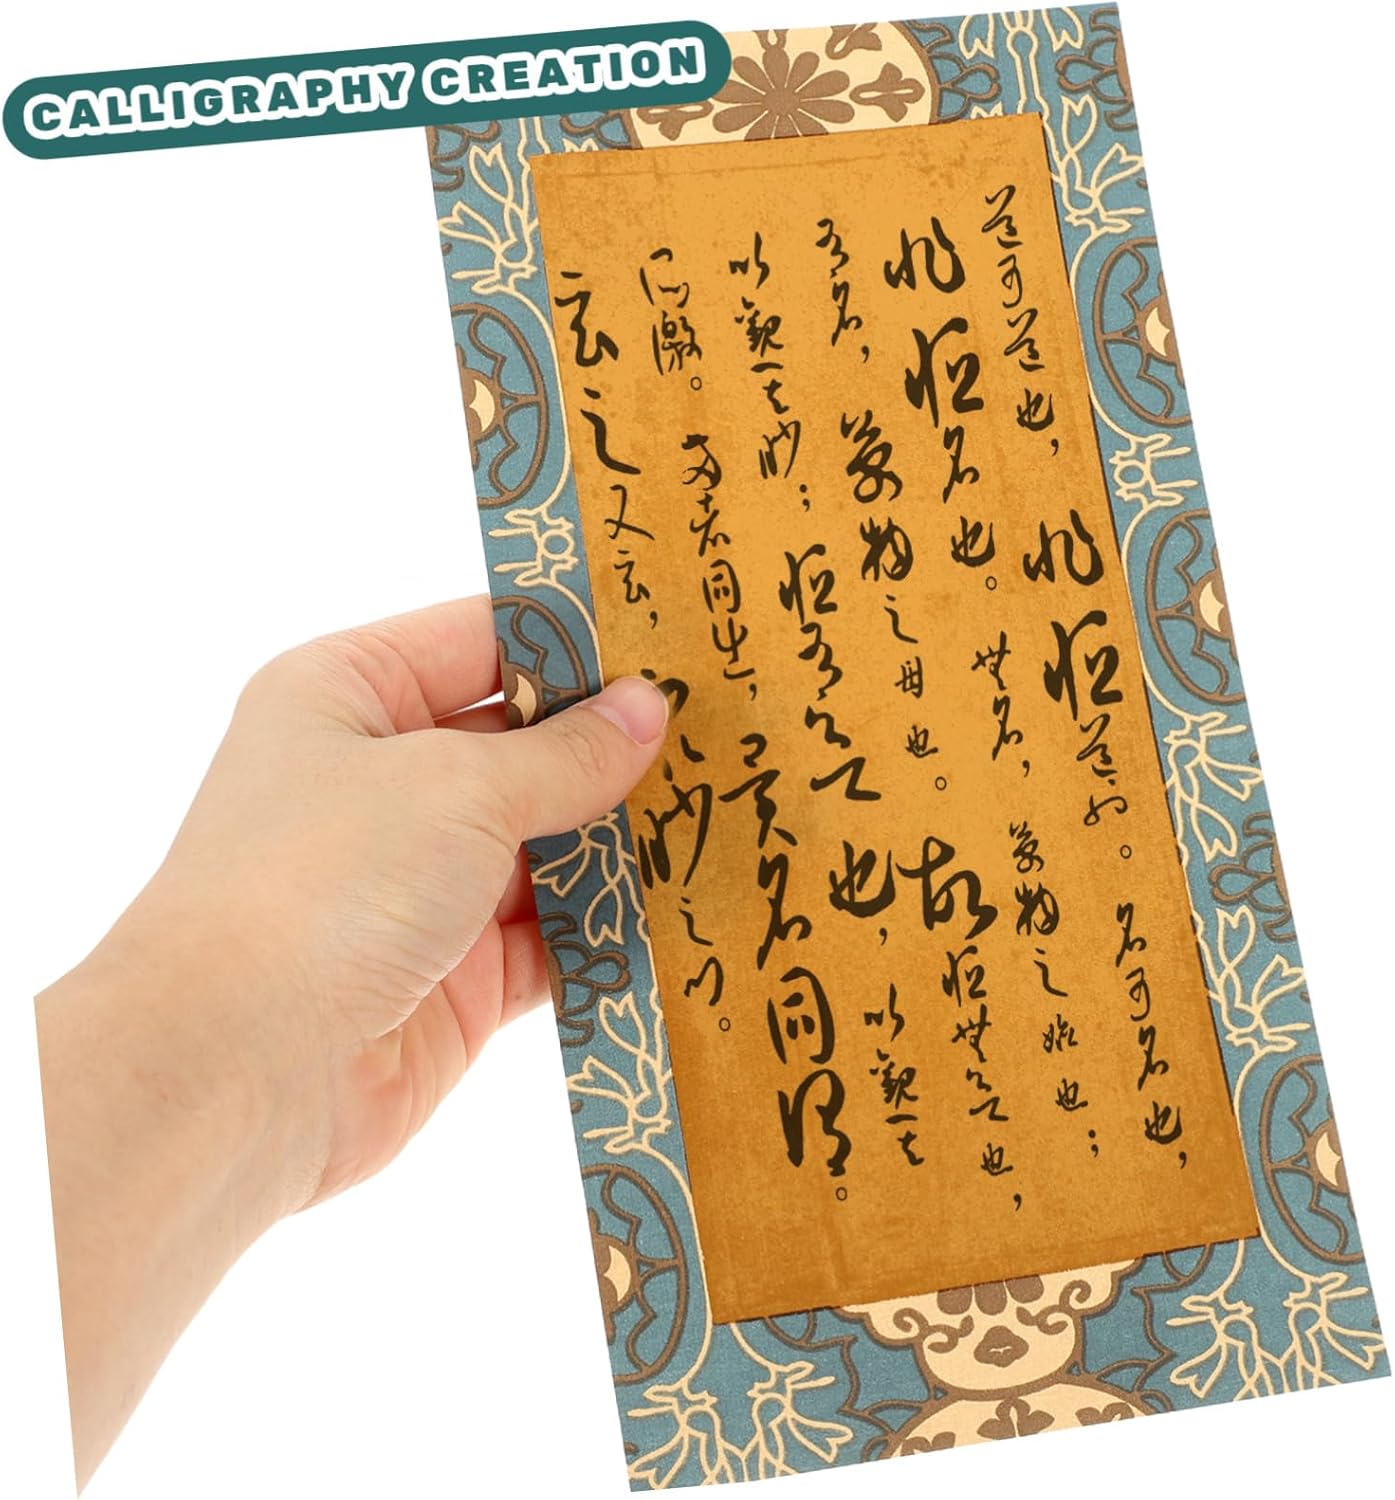 CALLIGRAPHY CREATION
道可道也，非恒道也。名可名也，
非恒名也。無名，萬物之始也；
有名，萬物之母也。故恒無欲也，
以觀其妙；恒有欲也，以觀其
所徼。兩者同出，異名同謂。
玄之又玄，妙之门。